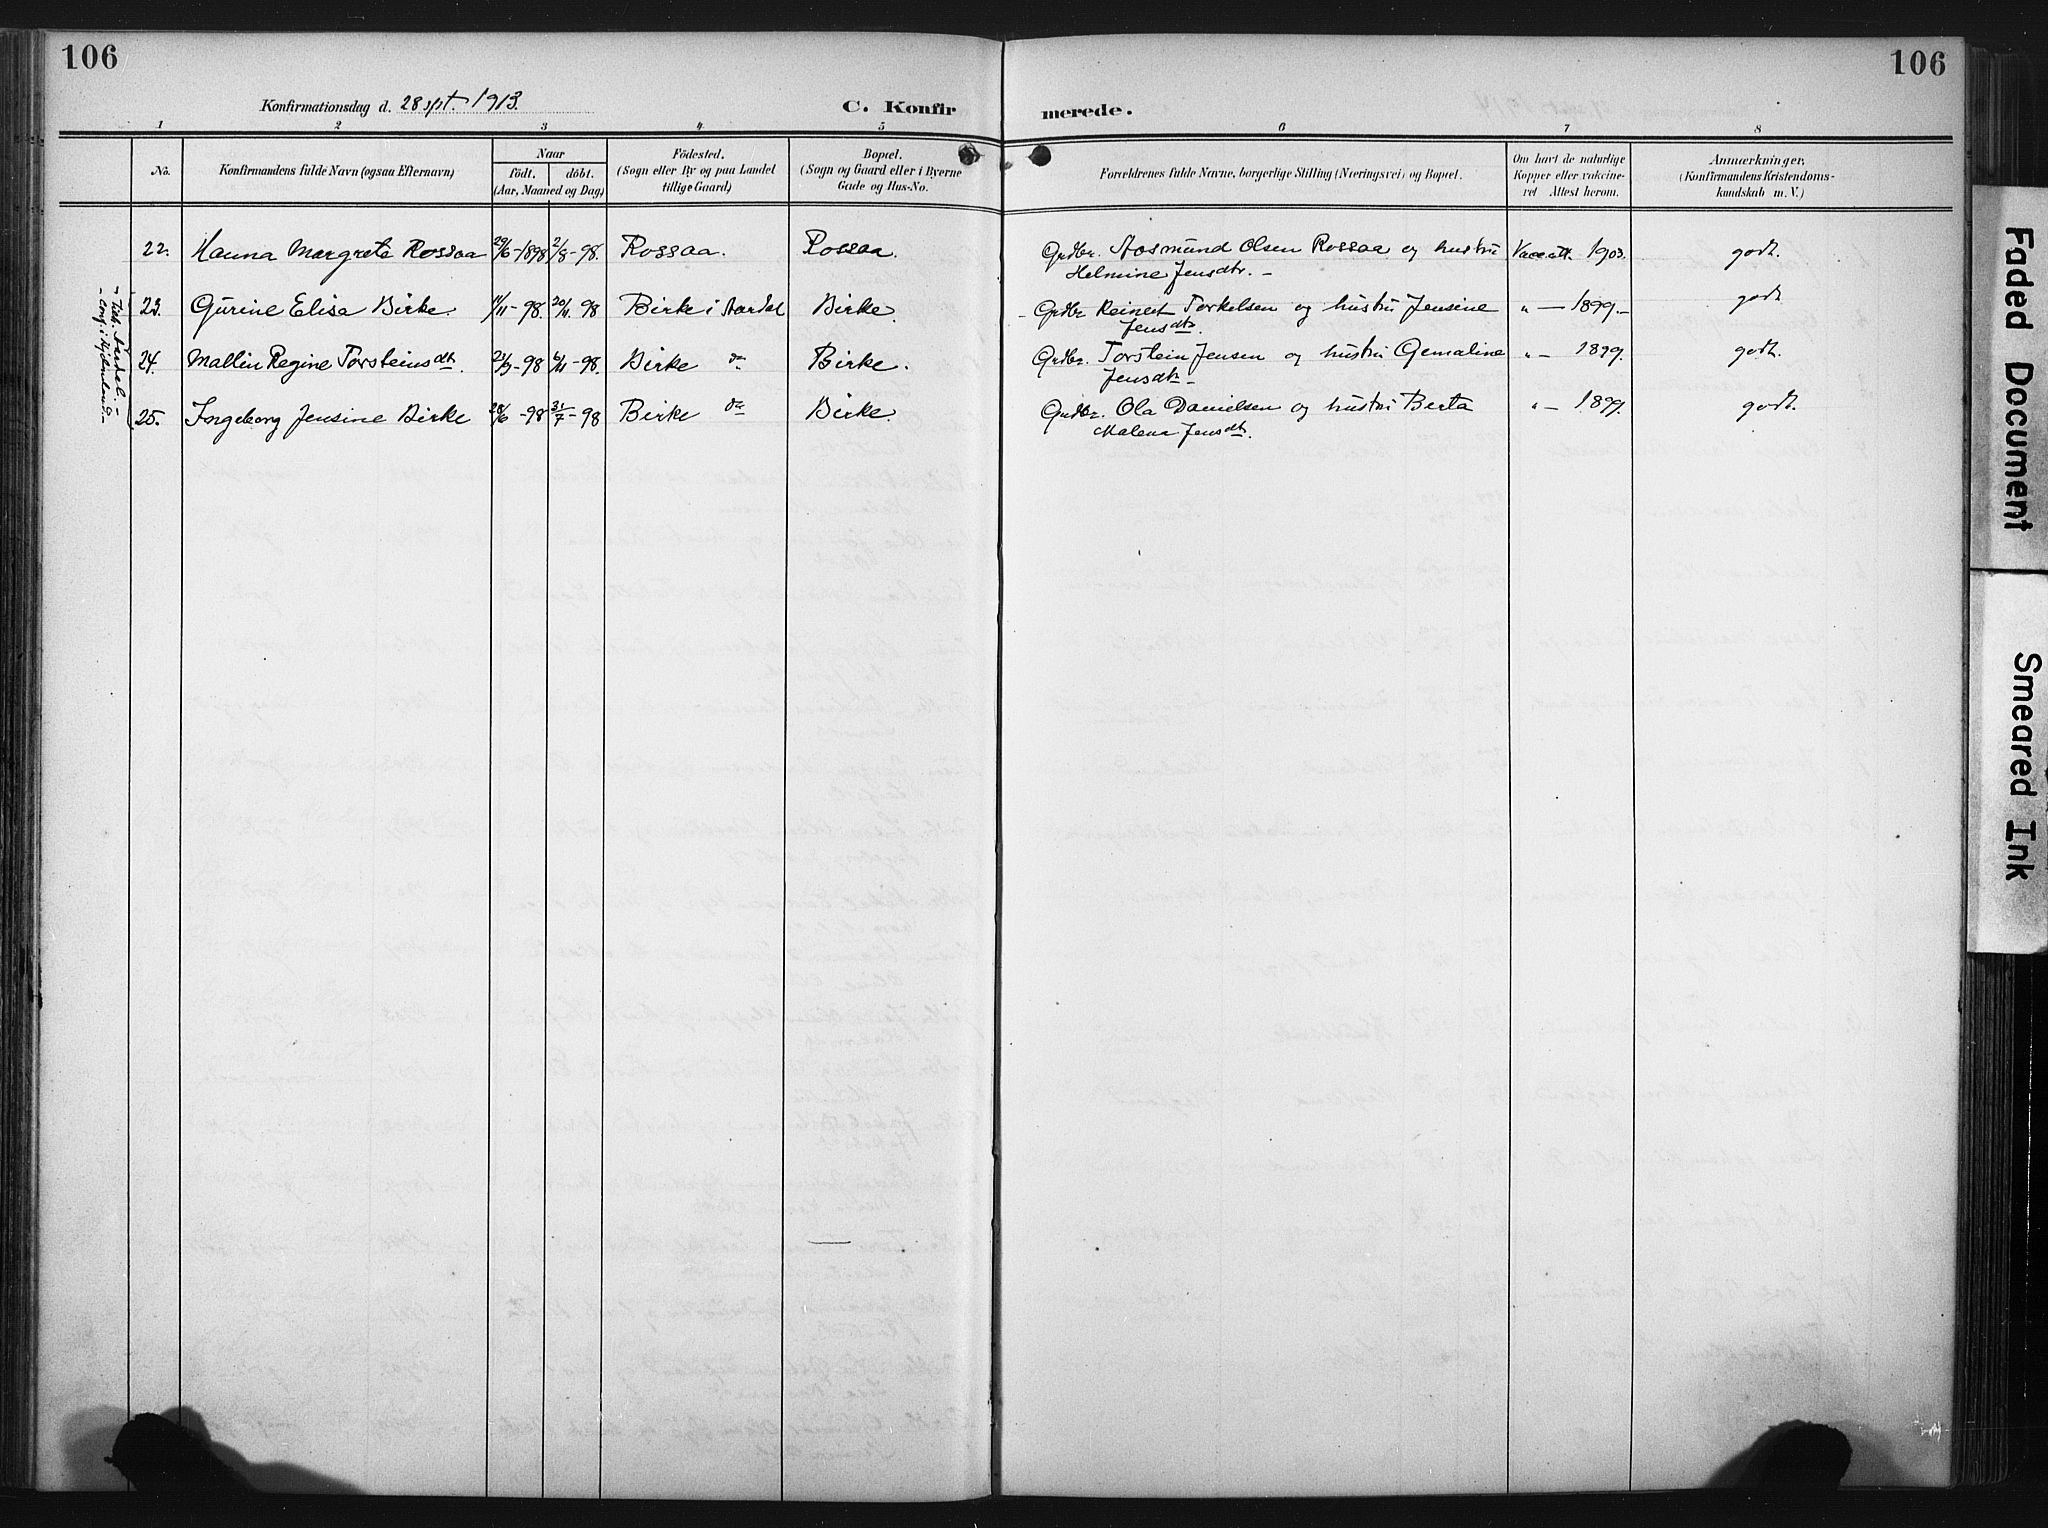 106
106
Konfirmationsdag d. 28 spt. 1913.
C. Konfirmerede.
1 2 3 4 5 6 7 8
No.
Konfirmandens fulde Navn (ogsaa Efternavn)
Naar
födt. döbt.
(Aar, Maaned og Dag)
Födested.
(Sogn eller By og paa Landet
tillige Gaard)
Bopæl.
(Sogn og Gaard eller i Byerne
Gade og Hus-No.
Forældrenes fulde Navne, borgerlige Stilling (Næringsvei) og Bopæl.
Om havt de naturlige
Kopper eller vakcine-
ret Attest herom.
Anmærkninger,
(Konfirmandens Kristendoms-
kundskab m. V.)
22. Hanna Margrete Rossaa 29/6-1898 2/8-98. Rossaa. Rossaa. Grdbr. Aosmund Olsen Rossaa og hustru Vacc att. 1903. godt.
Helmine Jensdtr. -
23. Gurine Elisa Birke. 1/11-98. 20/11 98 Birke i Aardal Birke. Grdbr Reinert Torkelsen og hustru Jensine " — 1899.- godt
Jensdtr.
24. Mallin Regine Torsteinsdtr. 21/9-98 6/11-98. Birke do Birke. Grdbr. Torstein Jensen og hustru Gemaline " - 1899. godt.
Jensdtr -
25. Ingeborg Jensine Birke 28/6-98 31/7-98 Birke do Birke. Grdbr. Ola Danielsen og hustru Berta " - 1899. godt.
Malena Jensdtr.
Faded Document
Smeared Ink